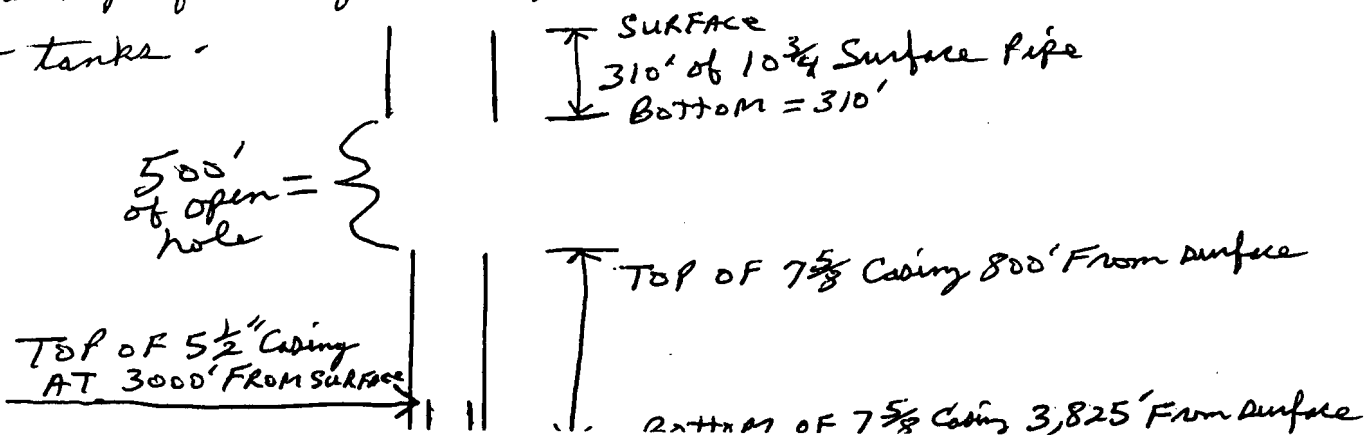 - tanks -
SURFACE
310' of 10 3/4 Surface Pipe
BOTTOM = 310'
500'
of open =
hole
TOP OF 7 5/8 Casing 800' From surface
TOP OF 5 1/2" Casing
AT 3000' FROM SURFACE
Bottom OF 7 5/8 Casing 3,825' From surface